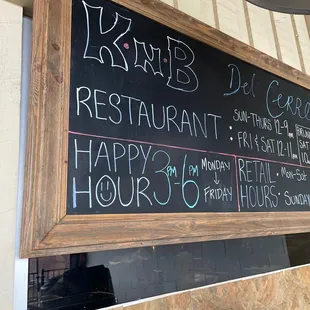 K·N·B
Del Cerro
RESTAURANT: SUN-THURS 12-9PM
FRI & SAT 12-11PM
HAPPY HOUR 3PM-6PM MONDAY ↓ FRIDAY
RETAIL HOURS: MON-SAT
SUNDAY